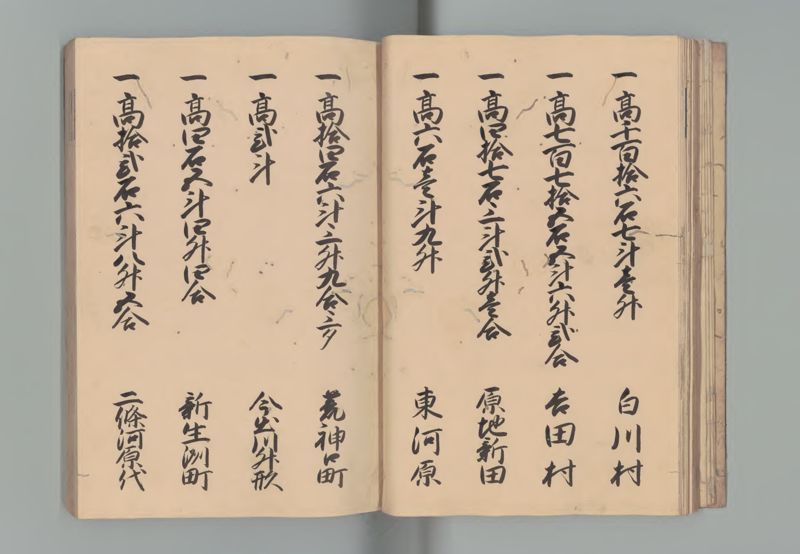 一高千百拾六石七斗壱升 白川村
一高七百七拾五石五斗六升弐合 吉田村
一高四拾七石三斗弐升壱合 原地新田
一高六石壱斗九升 東河原
一高拾四石六斗三升九合三夕 荒神口町
一高弐斗 今出川升形
一高四石五斗四升四合 新生洲町
一高拾弐石六斗八升五合 二條河原代